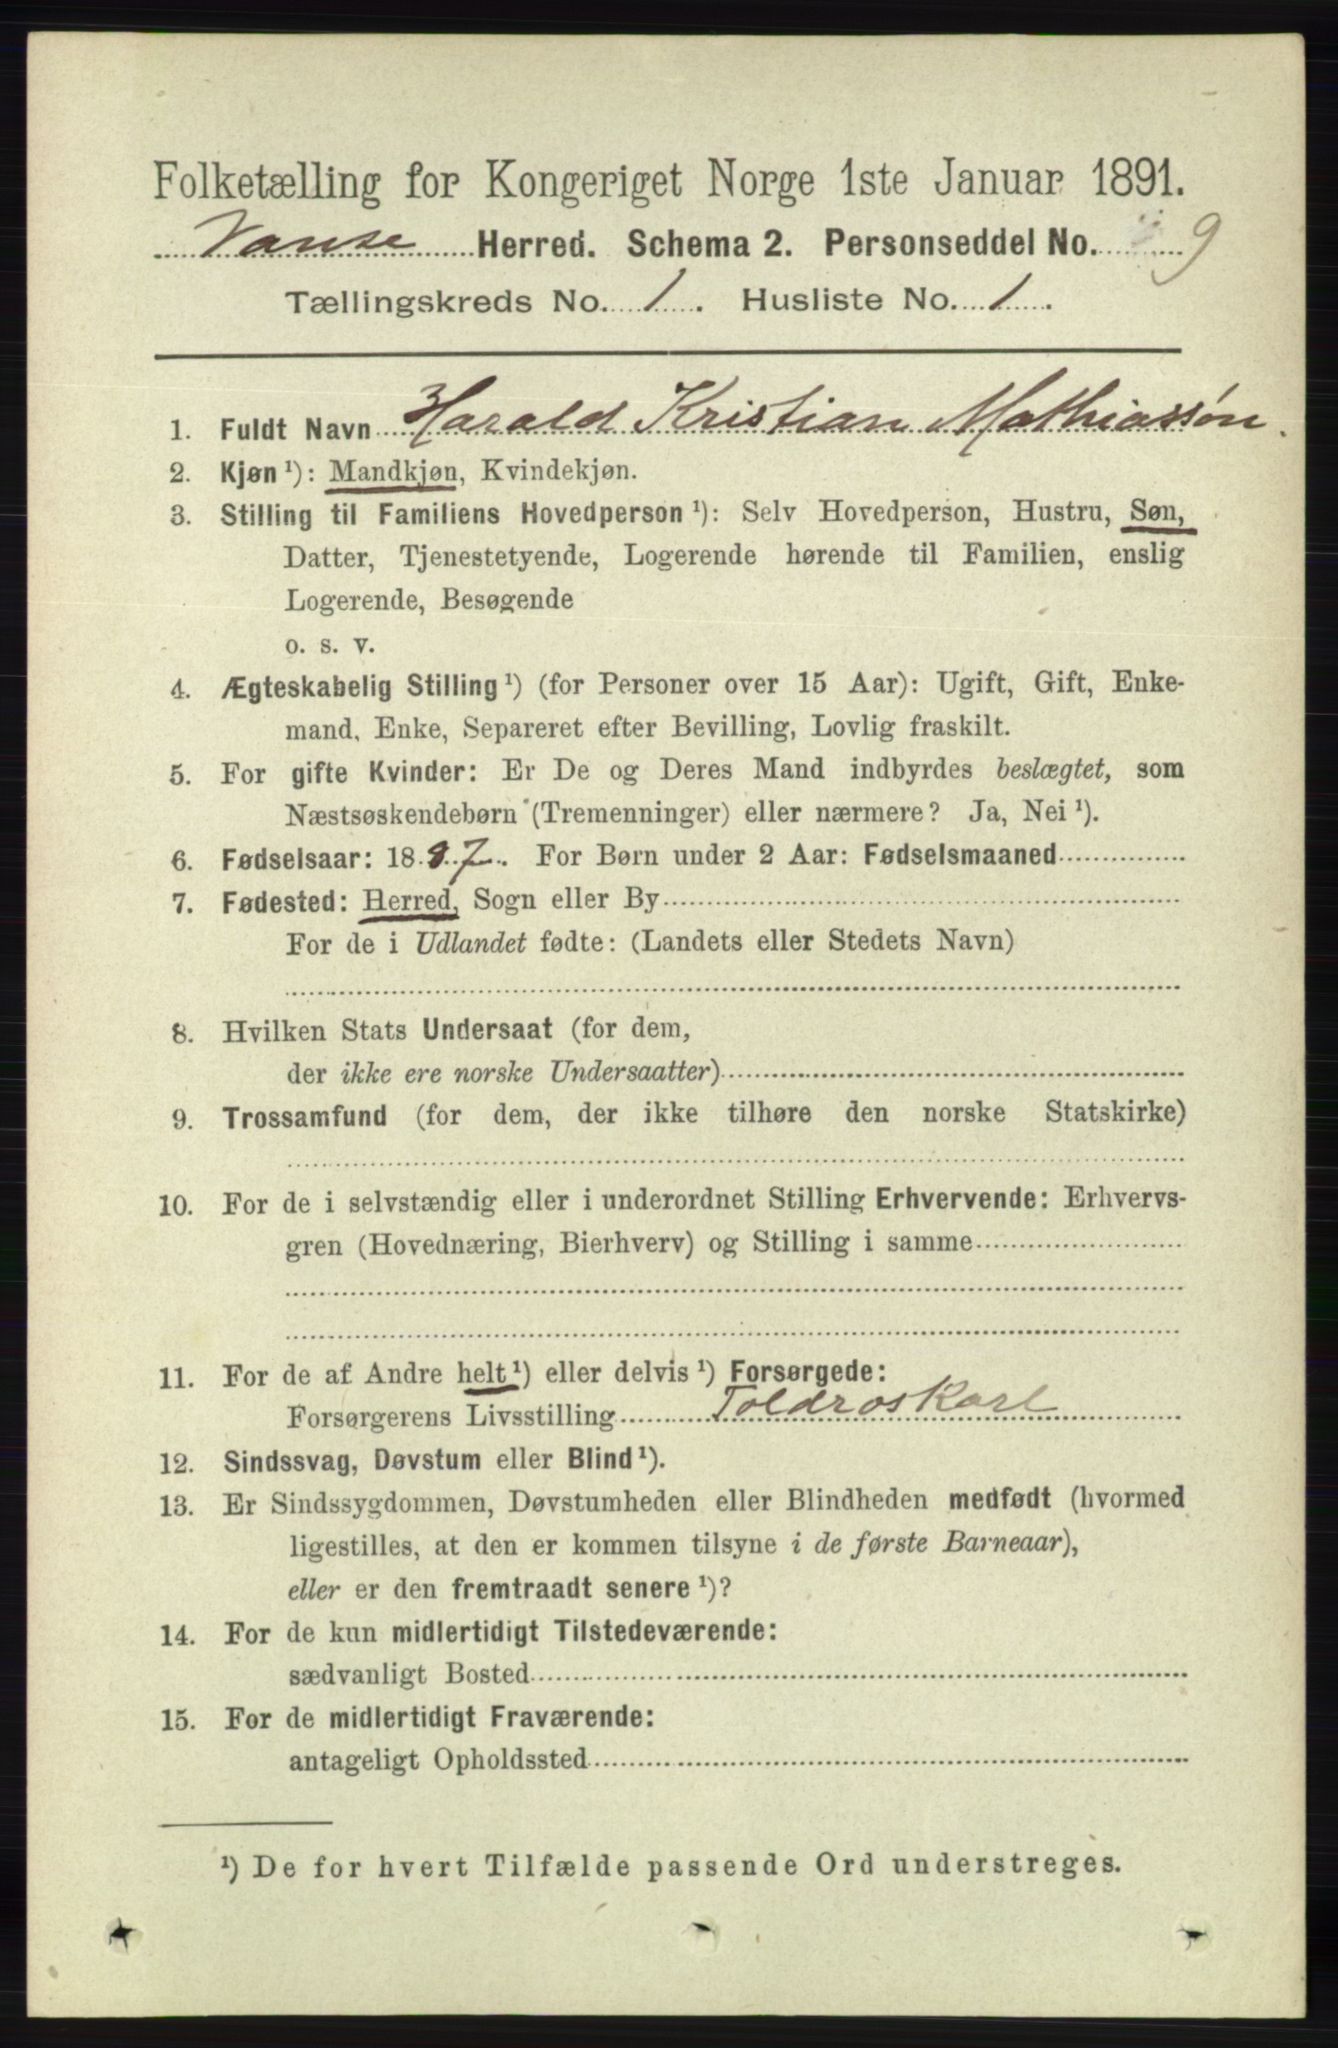 Folketælling for Kongeriget Norge 1ste Januar 1891.
Vanse Herred. Schema 2. Personseddel No. 9
Tællingskreds No. 1. Husliste No. 1.
1. Fuldt Navn Harald Kristian Mathiassøn.
2. Kjøn ¹): Mandkjøn, Kvindekjøn.
3. Stilling til Familiens Hovedperson ¹): Selv Hovedperson, Hustru, Søn,
Datter, Tjenestetyende, Logerende hørende til Familien, enslig
Logerende, Besøgende
o. s. v.
4. Ægteskabelig Stilling ¹) (for Personer over 15 Aar): Ugift, Gift, Enke-
mand, Enke, Separeret efter Bevilling, Lovlig fraskilt.
5. For gifte Kvinder: Er De og Deres Mand indbyrdes beslægtet, som
Næstsøskendebørn (Tremenninger) eller nærmere? Ja, Nei ¹).
6. Fødselsaar: 1887. For Børn under 2 Aar: Fødselsmaaned
7. Fødested: Herred, Sogn eller By
For de i Udlandet fødte: (Landets eller Stedets Navn)
8. Hvilken Stats Undersaat (for dem,
der ikke ere norske Undersaatter)
9. Trossamfund (for dem, der ikke tilhøre den norske Statskirke)
10. For de i selvstændig eller i underordnet Stilling Erhvervende: Erhvervs-
gren (Hovednæring, Bierhverv) og Stilling i samme
11. For de af Andre helt ¹) eller delvis ¹) Forsørgede:
Forsørgerens Livsstilling Toldroskarl
12. Sindssvag, Døvstum eller Blind ¹).
13. Er Sindssygdommen, Døvstumheden eller Blindheden medfødt (hvormed
ligestilles, at den er kommen tilsyne i de første Barneaar),
eller er den fremtraadt senere ¹)?
14. For de kun midlertidigt Tilstedeværende:
sædvanligt Bosted
15. For de midlertidigt Fraværende:
antageligt Opholdssted
¹) De for hvert Tilfælde passende Ord understreges.